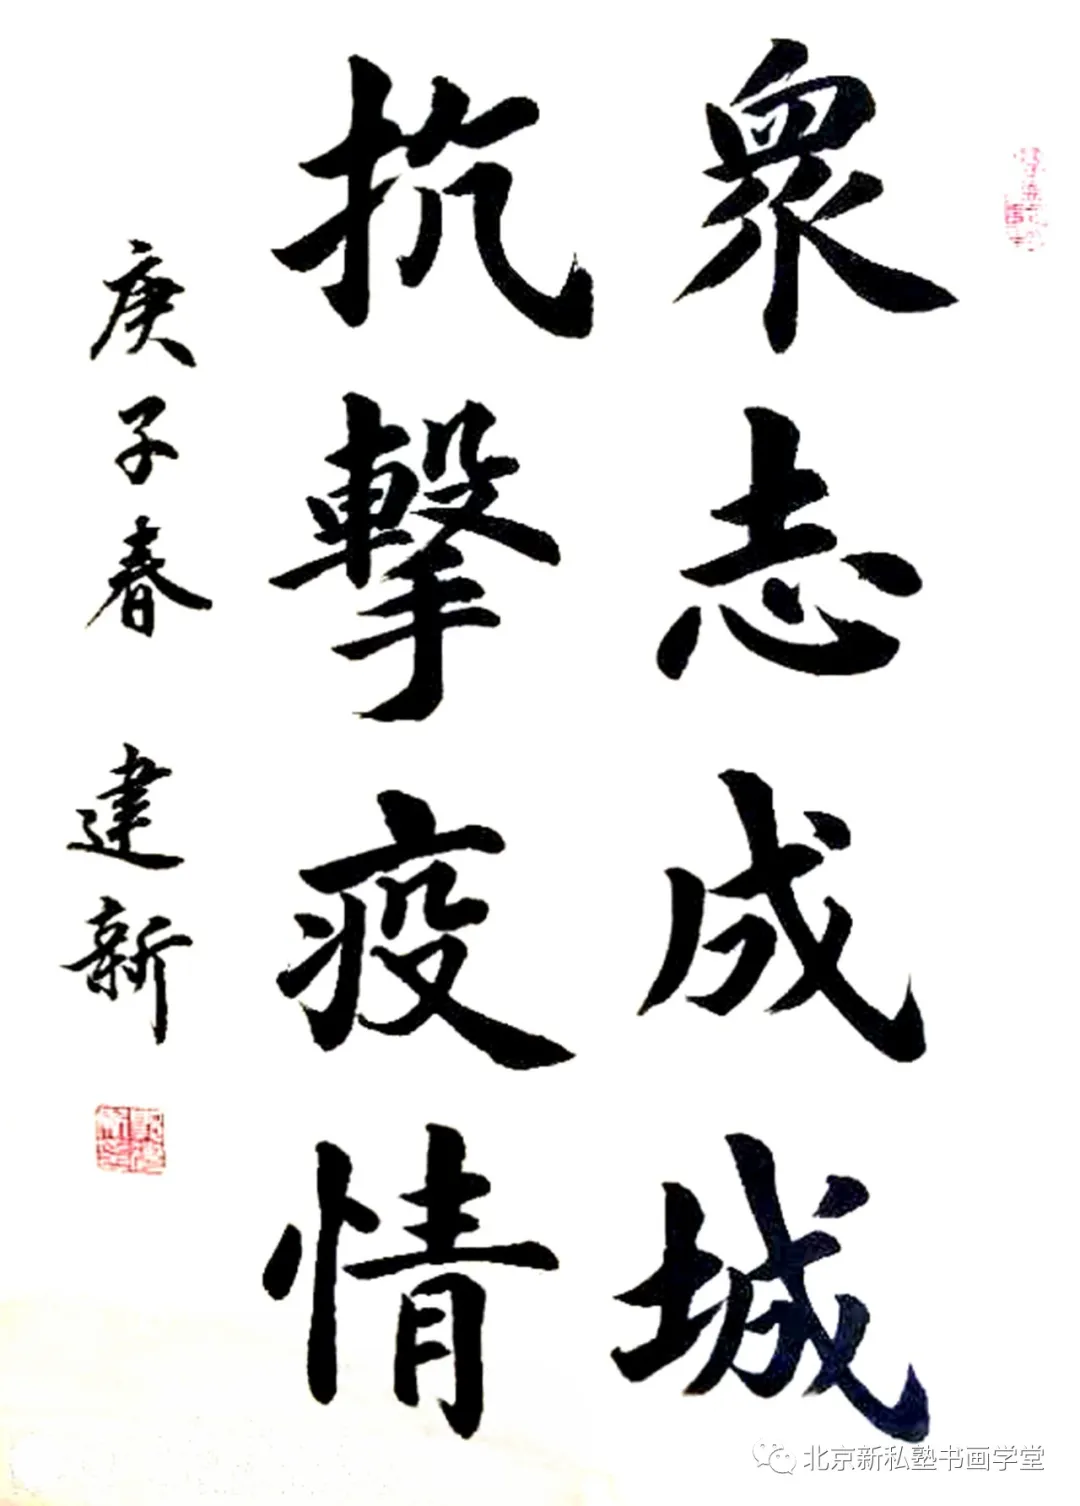 眾志成城
抗擊疫情
庚子春 建新
北京新私塾书画学堂